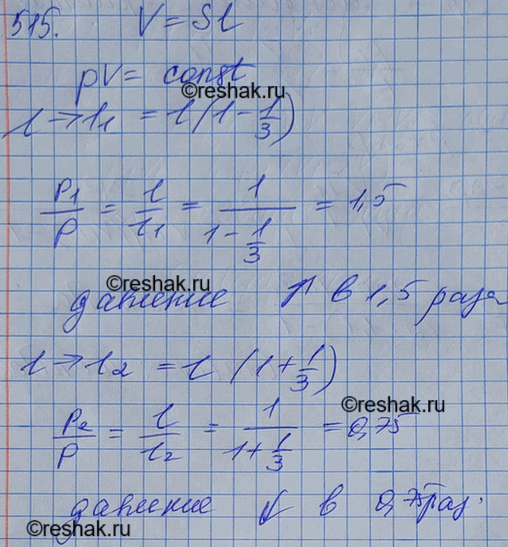 515. V = Sl
pV = const
©reshak.ru
l → l₁ = l(1 - 1/3)
p₁/p = l/l₁ = 1/(1 - 1/3) = 1,5
©reshak.ru
давление ↑ в 1,5 раза
l → l₂ = l (1 + 1/3)
p₂/p = l/l₂ = 1/(1 + 1/3) = 0,75
©reshak.ru
давление ↓ в 0,75 раз.
©reshak.ru